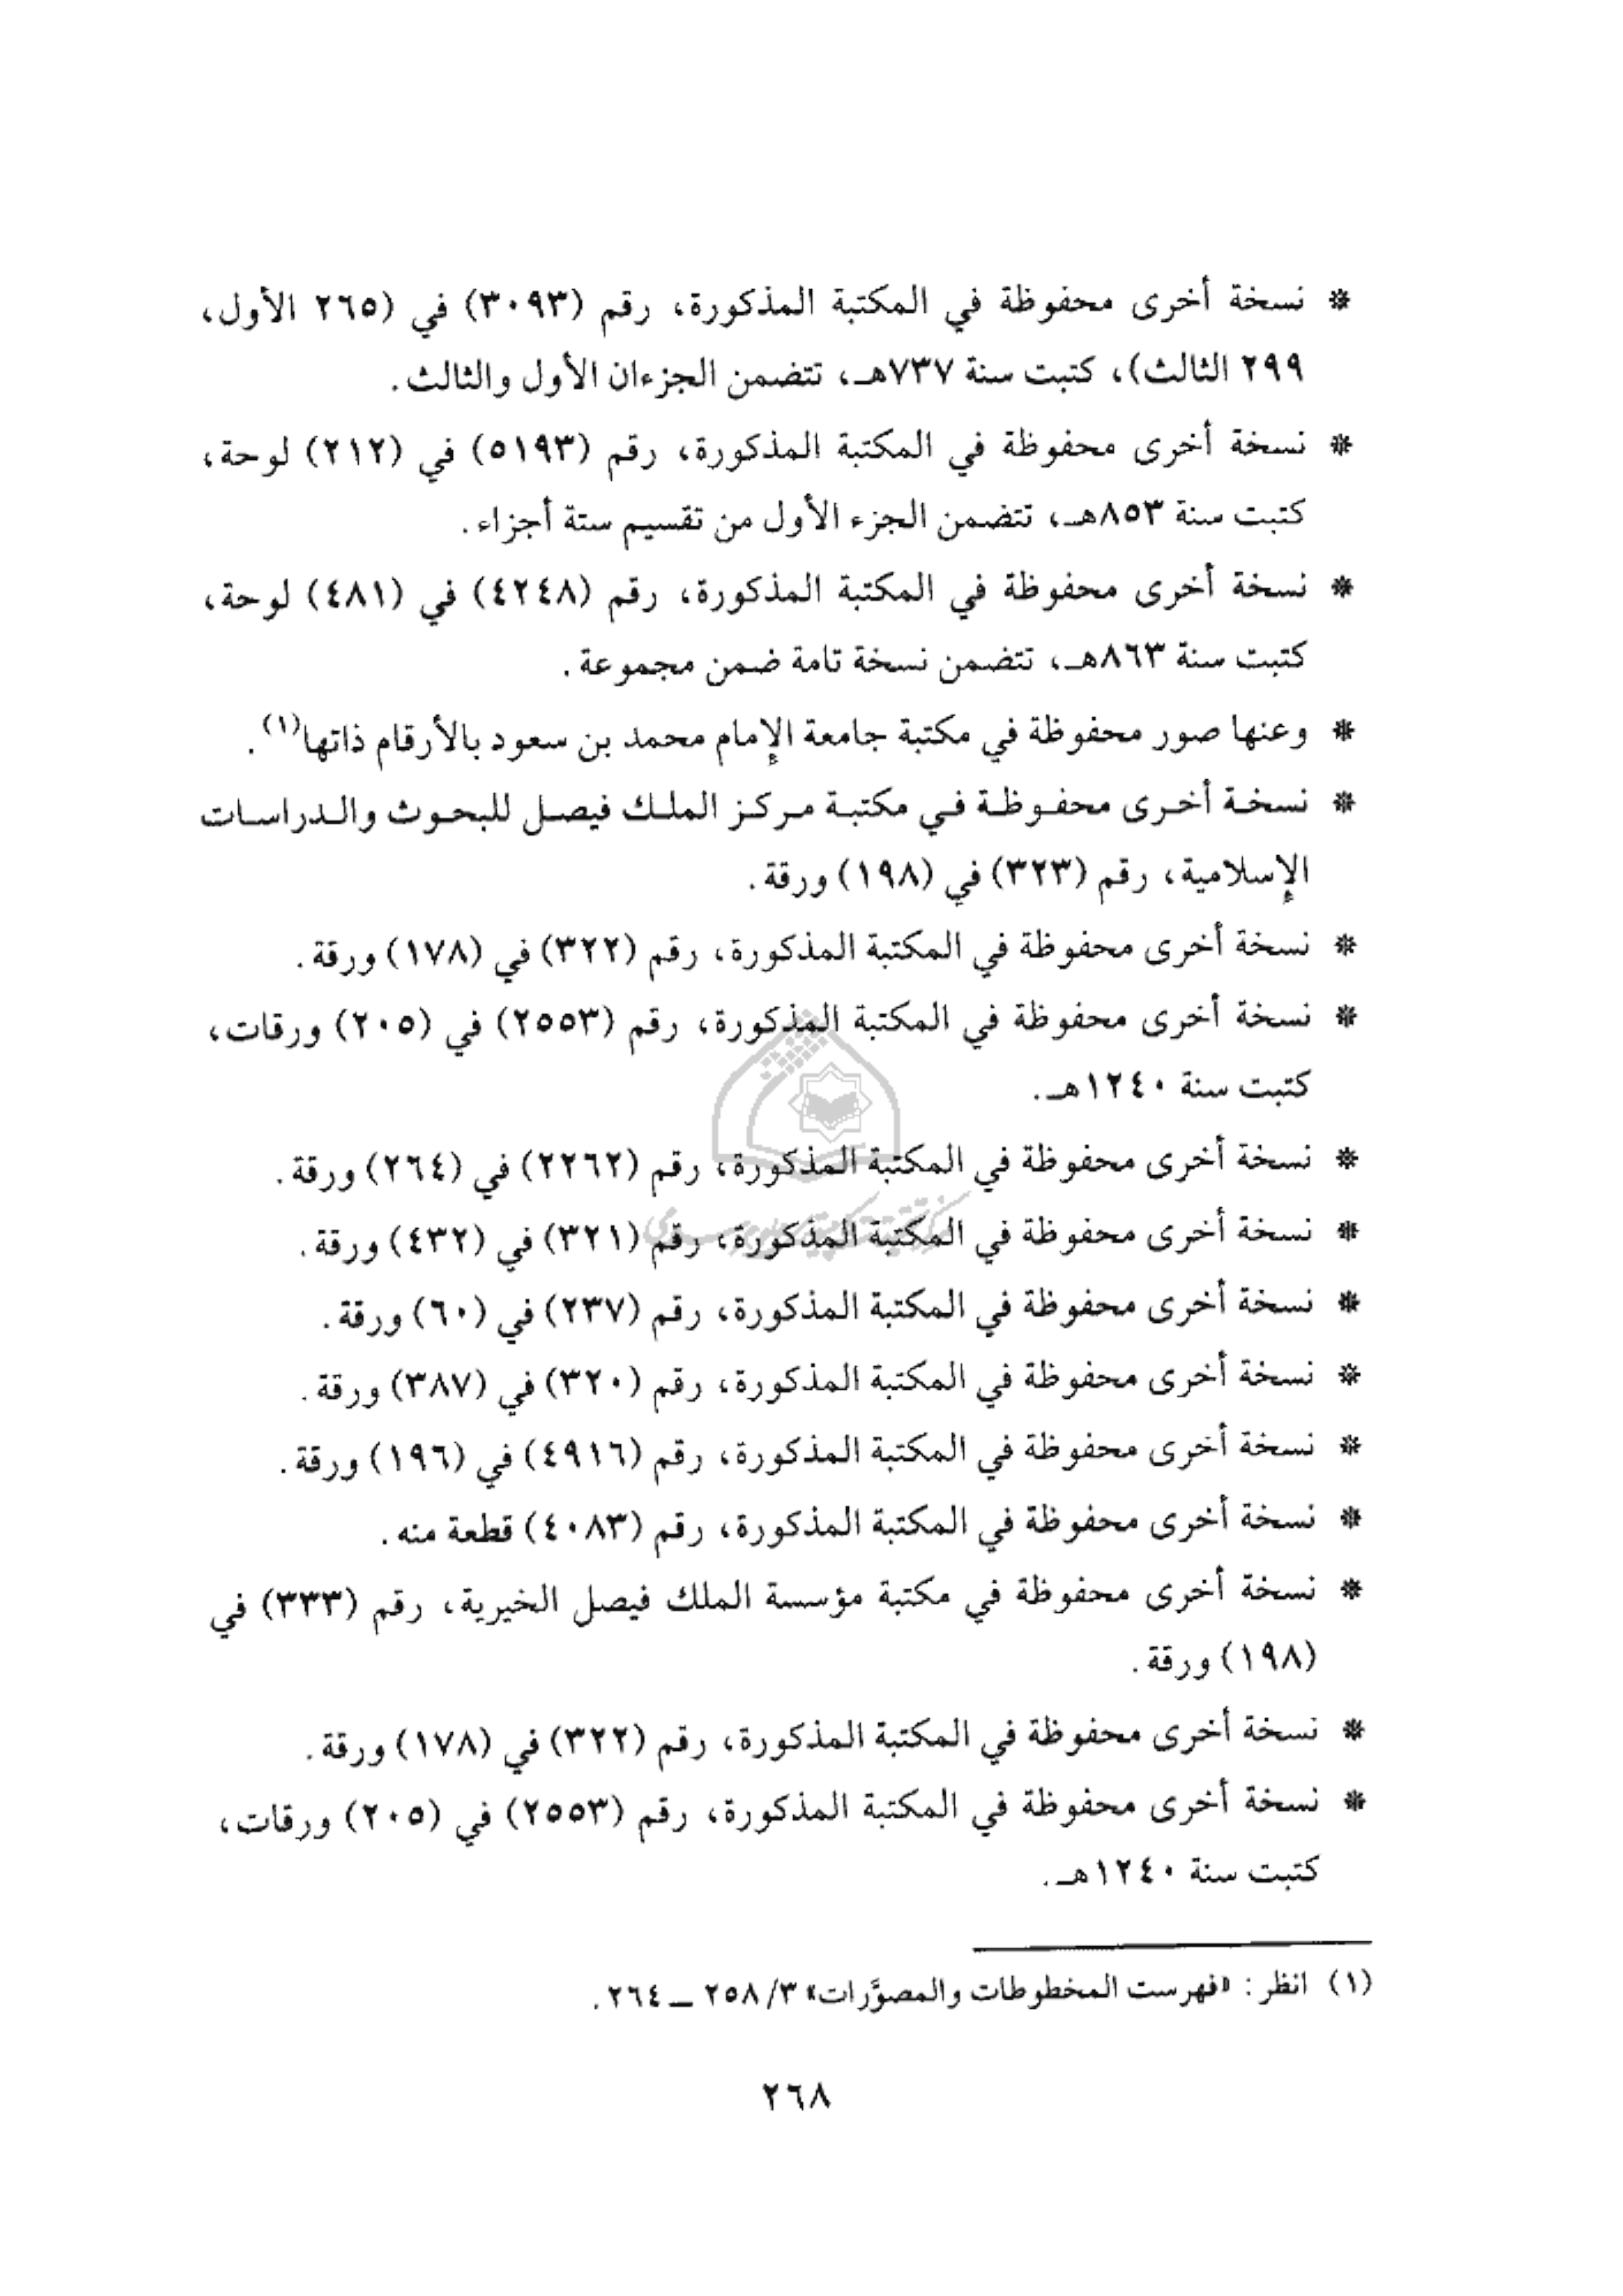 * نسخة أخرى محفوظة في المكتبة المذكورة، رقم (٣٠٩٣) في (٢٦٥ الأول،
٢٩٩ الثالث)، كتبت سنة ٧٣٧هـ، تتضمن الجزءان الأول والثالث.
* نسخة أخرى محفوظة في المكتبة المذكورة، رقم (٥١٩٣) في (٢١٢) لوحة،
كتبت سنة ٨٥٣هـ، تتضمن الجزء الأول من تقسيم ستة أجزاء.
* نسخة أخرى محفوظة في المكتبة المذكورة، رقم (٤٢٤٨) في (٤٨١) لوحة،
كتبت سنة ٨٦٣هـ، تتضمن نسخة تامة ضمن مجموعة.
* وعنها صور محفوظة في مكتبة جامعة الإمام محمد بن سعود بالأرقام ذاتها(١).
* نسخة أخرى محفوظة في مكتبة مركز الملك فيصل للبحوث والدراسات
الإسلامية، رقم (٣٢٣) في (١٩٨) ورقة.
* نسخة أخرى محفوظة في المكتبة المذكورة، رقم (٣٢٢) في (١٧٨) ورقة.
* نسخة أخرى محفوظة في المكتبة المذكورة، رقم (٢٥٥٣) في (٢٠٥) ورقات،
كتبت سنة ١٢٤٠هـ.
* نسخة أخرى محفوظة في المكتبة المذكورة، رقم (٢٢٦٢) في (٢٦٤) ورقة.
* نسخة أخرى محفوظة في المكتبة المذكورة، رقم (٣٢١) في (٤٣٢) ورقة.
* نسخة أخرى محفوظة في المكتبة المذكورة، رقم (٢٣٧) في (٦٠) ورقة.
* نسخة أخرى محفوظة في المكتبة المذكورة، رقم (٣٢٠) في (٣٨٧) ورقة.
* نسخة أخرى محفوظة في المكتبة المذكورة، رقم (٤٩١٦) في (١٩٦) ورقة.
* نسخة أخرى محفوظة في المكتبة المذكورة، رقم (٤٠٨٣) قطعة منه.
* نسخة أخرى محفوظة في مكتبة مؤسسة الملك فيصل الخيرية، رقم (٣٣٣) في
(١٩٨) ورقة.
* نسخة أخرى محفوظة في المكتبة المذكورة، رقم (٣٢٢) في (١٧٨) ورقة.
* نسخة أخرى محفوظة في المكتبة المذكورة، رقم (٢٥٥٣) في (٢٠٥) ورقات،
كتبت سنة ١٢٤٠هـ.
(١) انظر: «فهرست المخطوطات والمصوَّرات» ٣/ ٢٥٨ ـ ٢٦٤.
٢٦٨